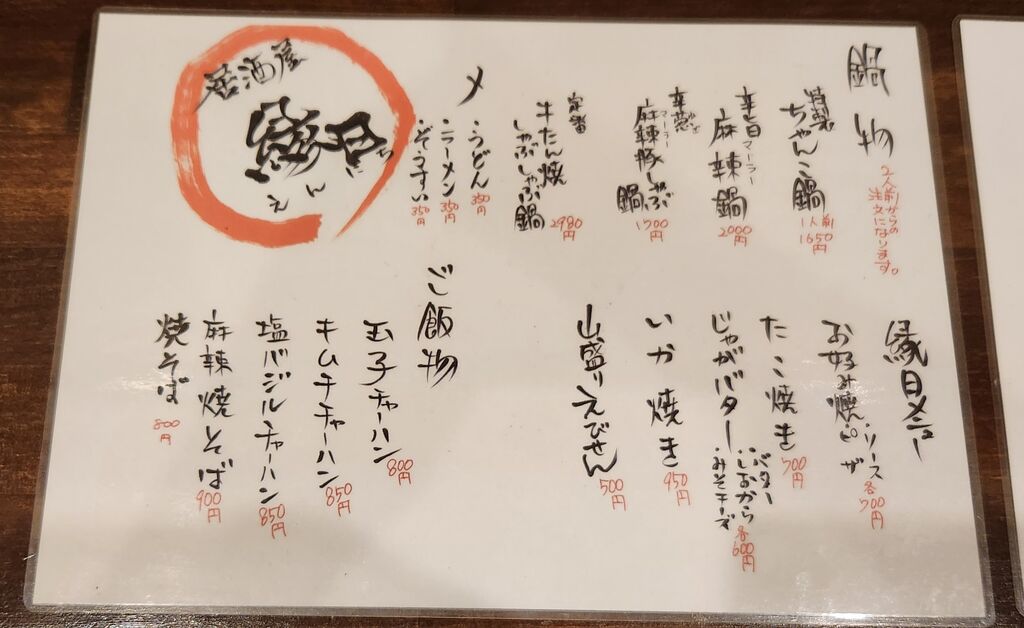 鍋物
2人前からの
注文になります。
特製
ちゃんこ鍋
1人前
1650円
辛旨
マーラー
麻辣鍋
2000円
マーラー
麻辣豚しゃぶ
鍋
1700円
定番
牛たん焼
しゃぶしゃぶ鍋
2980円
〆
・うどん
350円
・ラーメン
350円
・ぞうすい
350円
居酒屋
縁日
えんにち
縁日メニュー
お好み焼ピザ
・ソース
各700円
たこ焼き
700円
じゃがバター
・バター
・しおから
・みそチーズ
各600円
いか焼き
950円
山盛りえびせん
500円
ご飯物
玉子チャーハン
800円
キムチチャーハン
850円
塩バジルチャーハン
850円
麻辣焼そば
900円
焼そば
800円